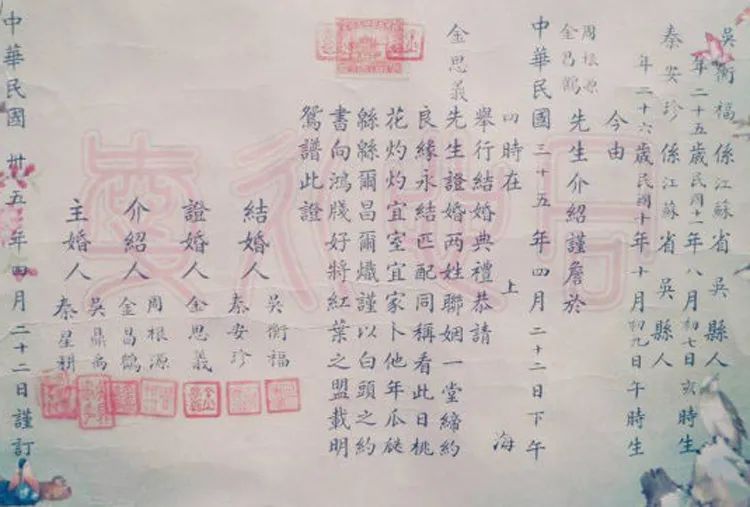 吳衡福係江蘇省吳縣人
年二十五歲民國十一年八月初七日亥時生
秦安珍係江蘇省吳縣人
年二十六歲民國十年十月初九日午時生
今由
周根源
金昌鶴
先生介紹謹詹於
中華民國三十五年四月二十二日下午
四時在上海
舉行結婚典禮恭請
金思義先生證婚两姓聯姻一堂締約
良緣永結匹配同稱看此日桃
花灼灼宜室宜家卜他年瓜瓞
緜緜爾昌爾熾謹以白頭之約
書向鴻牋好將紅葉之盟載明
鴛譜此證
結婚人
吳衡福
秦安珍
證婚人
金思義
介紹人
周根源
金昌鶴
主婚人
吳鼎禹
秦星耕
中華民國卅五年四月二十二日謹訂